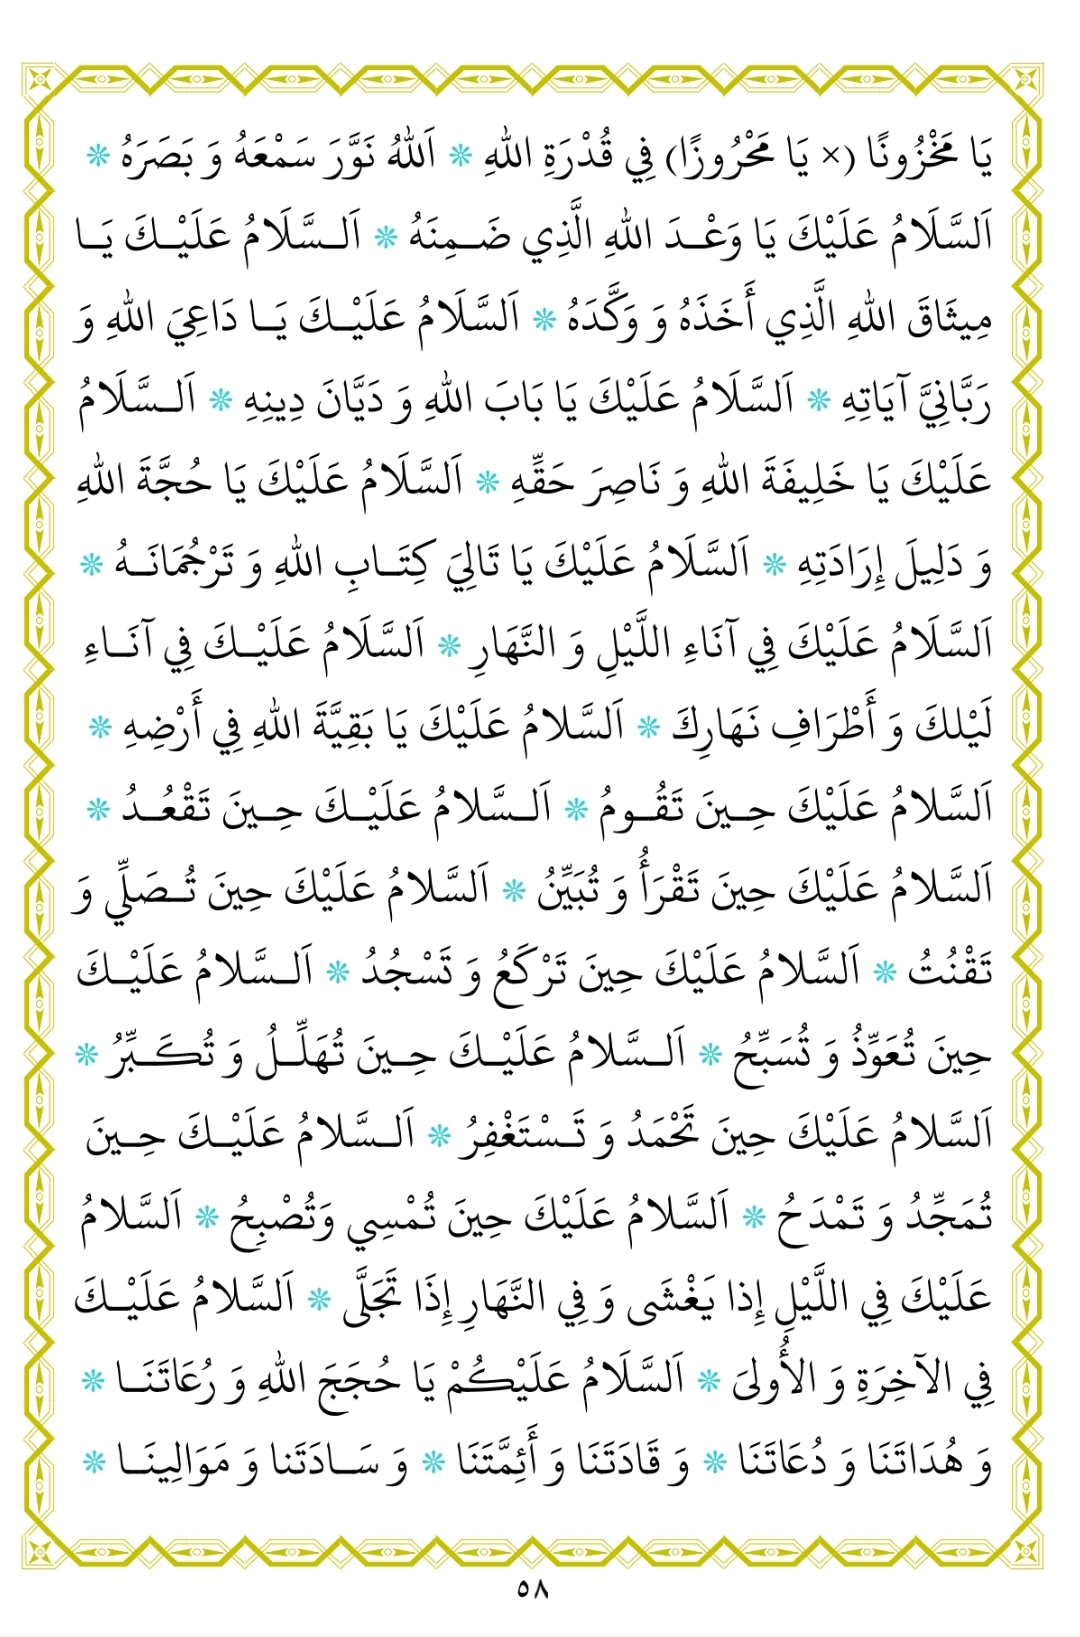 يَا مَخْزُونًا (× يَا مَحْرُوزًا) فِي قُدْرَةِ اللهِ * اَللهُ نَوَّرَ سَمْعَهُ وَ بَصَرَهُ *
اَلسَّلَامُ عَلَيْكَ يَا وَعْدَ اللهِ الَّذِي ضَمِنَهُ * اَلسَّلَامُ عَلَيْكَ يَا
مِيثَاقَ اللهِ الَّذِي أَخَذَهُ وَ وَكَّدَهُ * اَلسَّلَامُ عَلَيْكَ يَا دَاعِيَ اللهِ وَ
رَبَّانِيَّ آيَاتِهِ * اَلسَّلَامُ عَلَيْكَ يَا بَابَ اللهِ وَ دَيَّانَ دِينِهِ * اَلسَّلَامُ
عَلَيْكَ يَا خَلِيفَةَ اللهِ وَ نَاصِرَ حَقِّهِ * اَلسَّلَامُ عَلَيْكَ يَا حُجَّةَ اللهِ
وَ دَلِيلَ إِرَادَتِهِ * اَلسَّلَامُ عَلَيْكَ يَا تَالِيَ كِتَابِ اللهِ وَ تَرْجُمَانَهُ *
اَلسَّلَامُ عَلَيْكَ فِي آنَاءِ اللَّيْلِ وَ النَّهَارِ * اَلسَّلَامُ عَلَيْكَ فِي آنَاءِ
لَيْلكَ وَ أَطْرَافِ نَهَارِكَ * اَلسَّلامُ عَلَيْكَ يَا بَقِيَّةَ اللهِ فِي أَرْضِهِ *
اَلسَّلامُ عَلَيْكَ حِينَ تَقُومُ * اَلسَّلامُ عَلَيْكَ حِينَ تَقْعُدُ *
اَلسَّلامُ عَلَيْكَ حِينَ تَقْرَأُ وَ تُبَيِّنُ * اَلسَّلامُ عَلَيْكَ حِينَ تُصَلِّي وَ
تَقْنُتُ * اَلسَّلامُ عَلَيْكَ حِينَ تَرْكَعُ وَ تَسْجُدُ * اَلسَّلامُ عَلَيْكَ
حِينَ تُعَوِّذُ وَ تُسَبِّحُ * اَلسَّلامُ عَلَيْكَ حِينَ تُهَلِّلُ وَ تُكَبِّرُ *
اَلسَّلامُ عَلَيْكَ حِينَ تَحْمَدُ وَ تَسْتَغْفِرُ * اَلسَّلامُ عَلَيْكَ حِينَ
تُمَجِّدُ وَ تَمْدَحُ * اَلسَّلامُ عَلَيْكَ حِينَ تُمْسِي وَتُصْبِحُ * اَلسَّلامُ
عَلَيْكَ فِي اللَّيْلِ إِذا يَغْشَى وَ فِي النَّهَارِ إِذَا تَجَلَّى * اَلسَّلامُ عَلَيْكَ
فِي الآخِرَةِ وَ الأُولىَ * اَلسَّلَامُ عَلَيْكُمْ يَا حُجَجَ اللهِ وَ رُعَاتَنَا *
وَ هُدَاتَنَا وَ دُعَاتَنَا * وَ قَادَتَنَا وَ أَئِمَّتَنَا * وَ سَادَتَنا وَ مَوَالِينَا *
٥٨